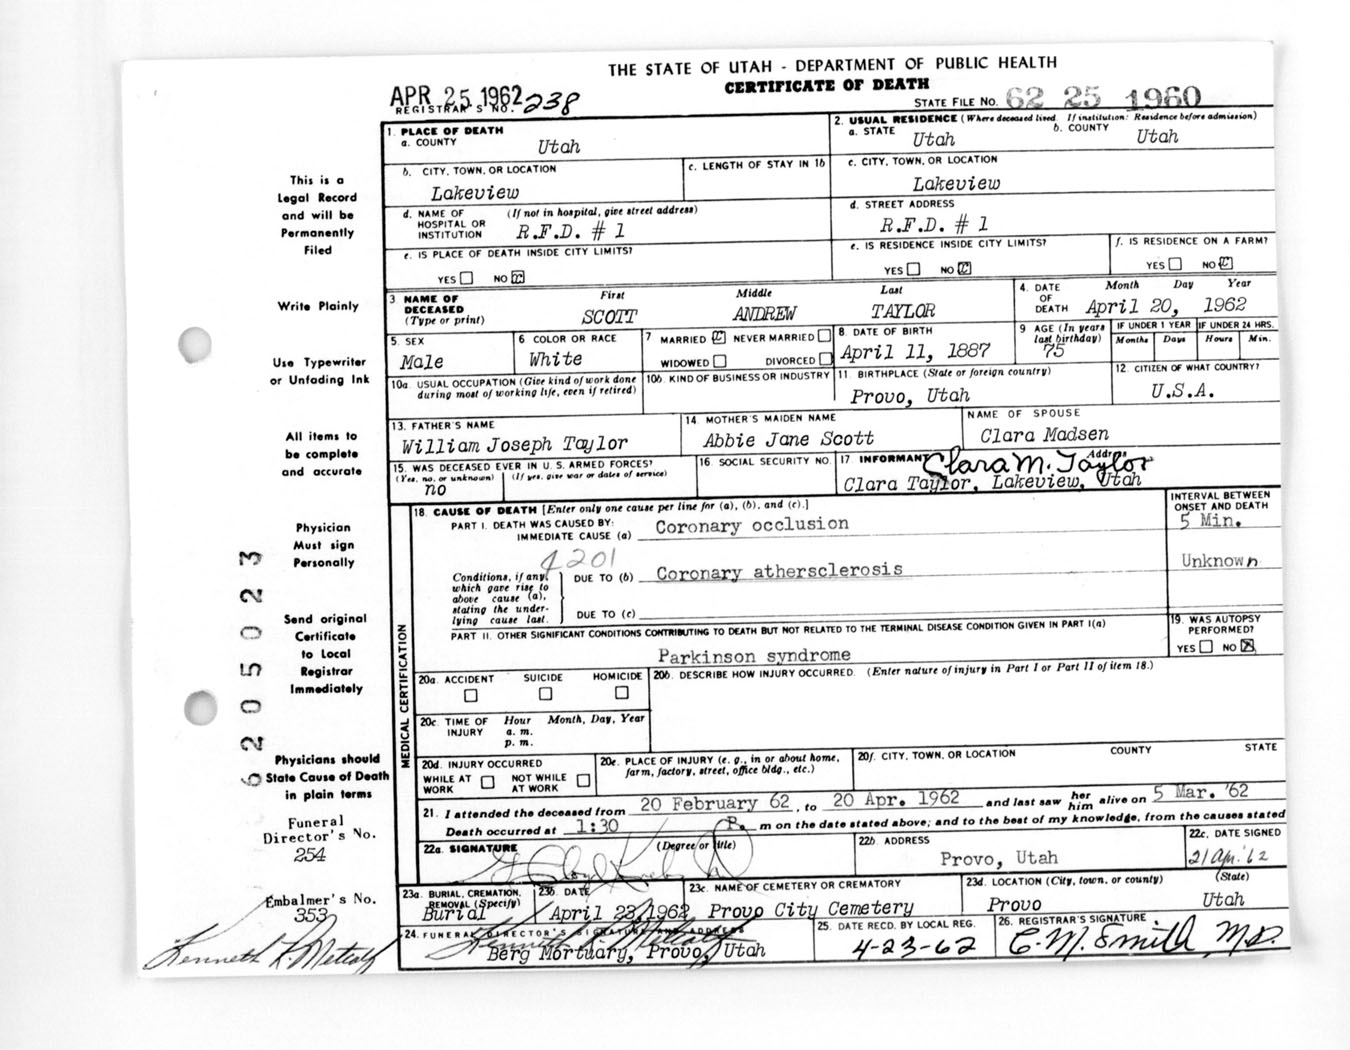 THE STATE OF UTAH - DEPARTMENT OF PUBLIC HEALTH
CERTIFICATE OF DEATH
APR 25 1962
REGISTRAR'S NO. 238
STATE FILE NO. 62 25 1960
This is a
Legal Record
and will be
Permanently
Filed
Write Plainly
Use Typewriter
or Unfading Ink
All items to
be complete
and accurate
Physician
Must sign
Personally
Send original
Certificate
to Local
Registrar
Immediately
Physicians should
State Cause of Death
in plain terms
Funeral
Director's No.
254
Embalmer's No.
353
Kenneth L. Metcalf
62 205023
1. PLACE OF DEATH
a. COUNTY Utah
2. USUAL RESIDENCE (Where deceased lived. If institution: Residence before admission)
a. STATE Utah b. COUNTY Utah
b. CITY, TOWN, OR LOCATION
Lakeview
c. LENGTH OF STAY IN 1b
c. CITY, TOWN, OR LOCATION
Lakeview
d. NAME OF HOSPITAL OR INSTITUTION (If not in hospital, give street address)
R.F.D. # 1
d. STREET ADDRESS
R.F.D. # 1
e. IS PLACE OF DEATH INSIDE CITY LIMITS?
YES NO
e. IS RESIDENCE INSIDE CITY LIMITS?
YES NO
f. IS RESIDENCE ON A FARM?
YES NO
3 NAME OF DECEASED (Type or print)
First Middle Last
SCOTT ANDREW TAYLOR
4. DATE OF DEATH Month Day Year
April 20, 1962
5. SEX
Male
6 COLOR OR RACE
White
7 MARRIED NEVER MARRIED
WIDOWED DIVORCED
8. DATE OF BIRTH
April 11, 1887
9 AGE (In years last birthday)
75
IF UNDER 1 YEAR
Months Days
IF UNDER 24 HRS.
Hours Min.
10a. USUAL OCCUPATION (Give kind of work done during most of working life, even if retired)
10b. KIND OF BUSINESS OR INDUSTRY
11. BIRTHPLACE (State or foreign country)
Provo, Utah
12. CITIZEN OF WHAT COUNTRY?
U.S.A.
13. FATHER'S NAME
William Joseph Taylor
14. MOTHER'S MAIDEN NAME
Abbie Jane Scott
NAME OF SPOUSE
Clara Madsen
15. WAS DECEASED EVER IN U. S. ARMED FORCES?
(Yes, no. or unknown) (If yes, give war or dates of service)
no
16 SOCIAL SECURITY NO.
17 INFORMANT Address
Clara M. Taylor
Clara Taylor, Lakeview, Utah
MEDICAL CERTIFICATION
18. CAUSE OF DEATH [Enter only one cause per line for (a), (b), and (c).]
INTERVAL BETWEEN ONSET AND DEATH
PART I. DEATH WAS CAUSED BY:
IMMEDIATE CAUSE (a) Coronary occlusion
5 Min.
4201
Conditions, if any, which gave rise to above cause (a), stating the underlying cause last.
DUE TO (b) Coronary athersclerosis
Unknown
DUE TO (c)
PART II. OTHER SIGNIFICANT CONDITIONS CONTRIBUTING TO DEATH BUT NOT RELATED TO THE TERMINAL DISEASE CONDITION GIVEN IN PART I(a)
Parkinson syndrome
19. WAS AUTOPSY PERFORMED?
YES NO
20a. ACCIDENT SUICIDE HOMICIDE
20b. DESCRIBE HOW INJURY OCCURRED. (Enter nature of injury in Part I or Part II of item 18.)
20c. TIME OF INJURY Hour Month, Day, Year
a. m.
p. m.
20d. INJURY OCCURRED
WHILE AT WORK NOT WHILE AT WORK
20e. PLACE OF INJURY (e. g., in or about home, farm, factory, street, office bldg., etc.)
20f. CITY, TOWN, OR LOCATION COUNTY STATE
21. I attended the deceased from 20 February 62, to 20 Apr. 1962 and last saw her him alive on 5 Mar. '62
Death occurred at 1:30 P. m on the date stated above; and to the best of my knowledge, from the causes stated
22a. SIGNATURE (Degree or title)
22b. ADDRESS
Provo, Utah
22c. DATE SIGNED
21 Apr. '62
23a. BURIAL, CREMATION, REMOVAL (Specify)
Burial
23b. DATE
April 23, 1962
23c. NAME OF CEMETERY OR CREMATORY
Provo City Cemetery
23d. LOCATION (City, town, or county) (State)
Provo Utah
24. FUNERAL DIRECTOR'S SIGNATURE AND ADDRESS
Kenneth L. Metcalf
Berg Mortuary, Provo, Utah
25. DATE RECD. BY LOCAL REG.
4-23-62
26. REGISTRAR'S SIGNATURE
C. M. Smith M.D.